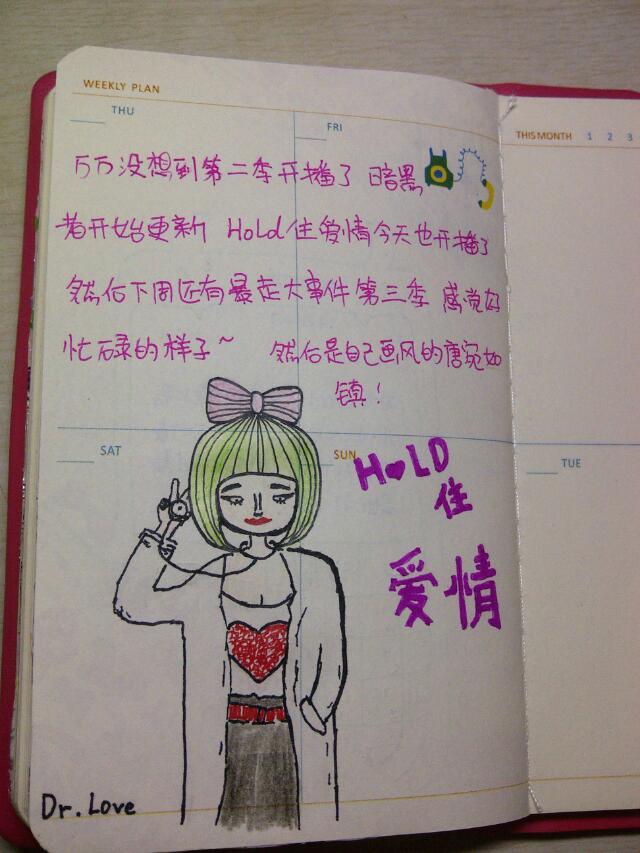 WEEKLY PLAN
THU
FRI
THIS MONTH 1 2 3
万万没想到第二季开播了 暗黑
者开始更新 HoLd住爱情今天也开播了
然后下周还有暴走大事件第三季 感觉好
忙碌的样子~ 然后是自己画风的唐宛如
镇!
SAT
SUN
TUE
HOLD
住
爱情
Dr. Love